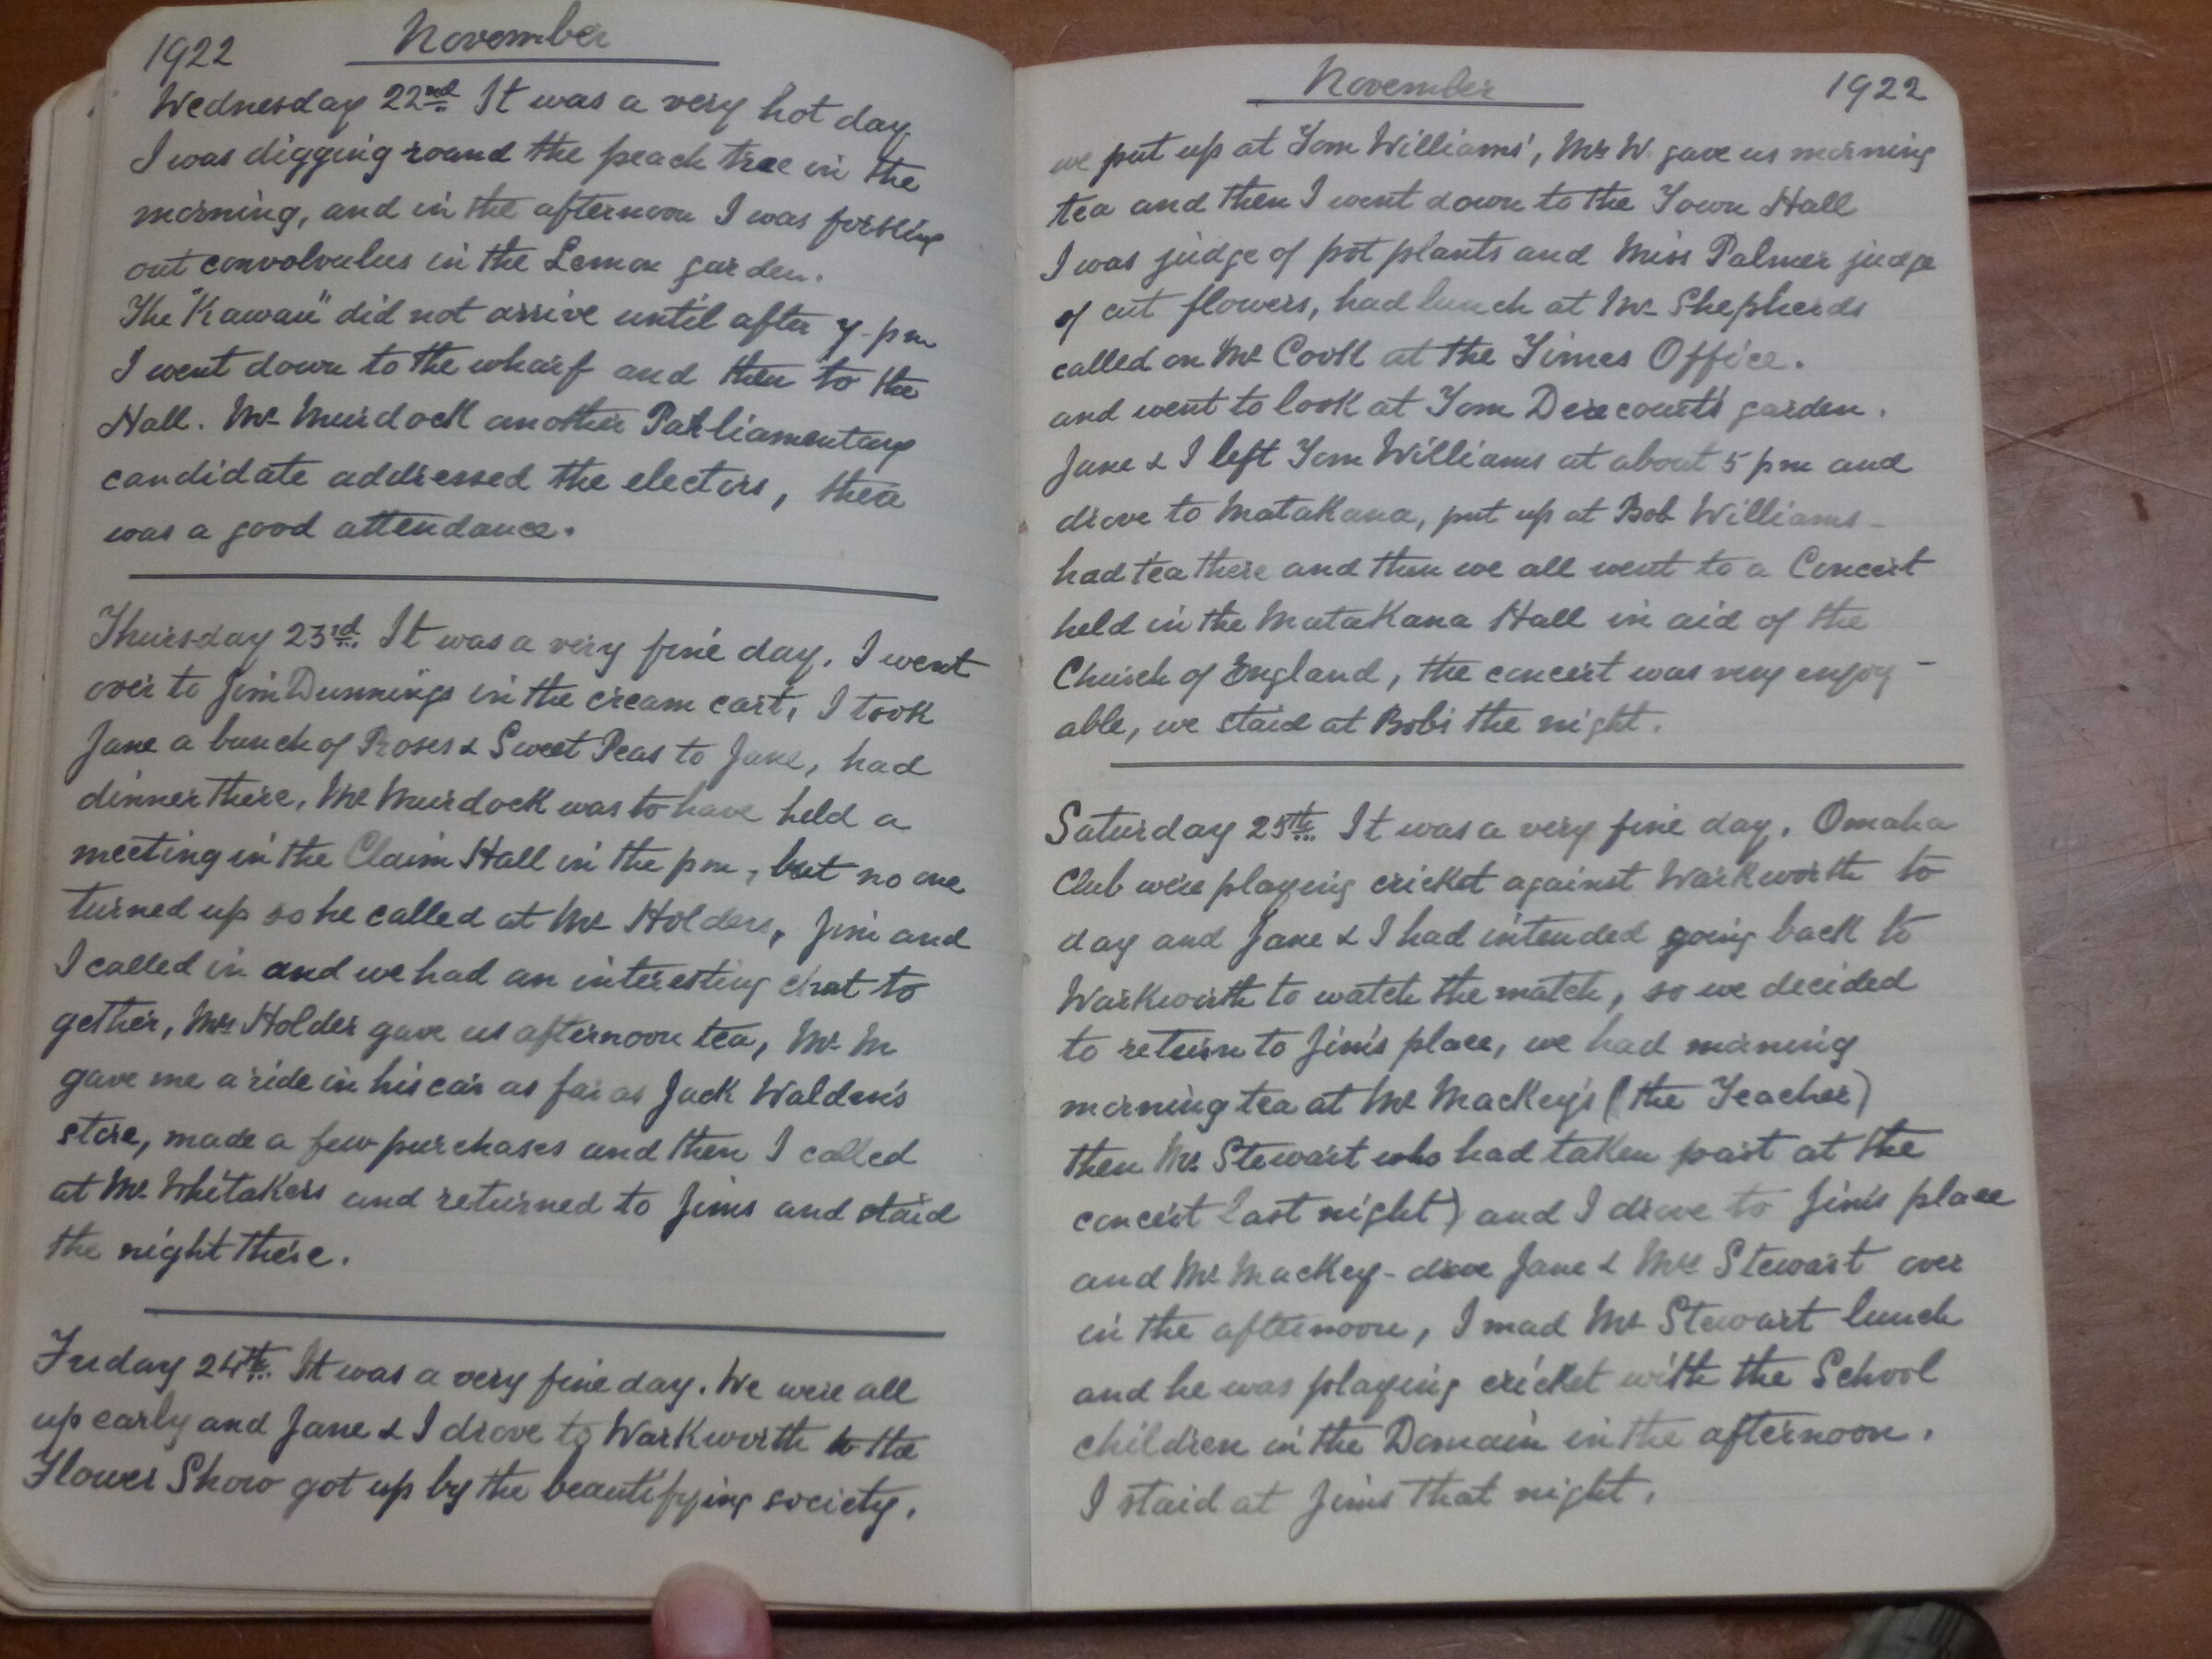 1922 November
Wednesday 22nd It was a very hot day
I was digging round the peach tree in the
morning, and in the afternoon I was forking
out convolvulus in the Lemon garden.
The "Kawau" did not arrive until after 7-pm
I went down to the wharf and then to the
Hall. Mr Murdock another Parliamentary
candidate addressed the electors, thea
was a good attendance.
Thursday 23rd. It was a very fine day. I went
over to Jim Dunnings in the cream cart, I took
Jane a bunch of Roses & Sweet Peas to Jane, had
dinner there, Mr Murdock was to have held a
meeting in the Claim Hall in the pm, but no one
turned up so he called at Mr Holders, Jim and
I called in and we had an interesting chat to
gether, Mrs Holder gave us afternoon tea, Mr. M
gave me a ride in his car as far as Jack Walden's
store, made a few purchases and then I called
at Mr Whitakers and returned to Jims and staid
the night there.
Friday 24th. It was a very fine day. We were all
up early and Jane & I drove to Warkworth to the
Flower Show got up by the beautifying society.
November 1922
we put up at Tom Williams', Mrs W. gave us morning
tea and then I went down to the Town Hall
I was judge of pot plants and Miss Palmer judge
of cut flowers, had lunch at Mr Shepherds
called on Mr Cook at the Times Office.
and went to look at Tom Deecourts garden.
Jane & I left Tom Williams at about 5 pm and
drove to Matakana, put up at Bob Williams-
had tea there and then we all went to a Concert
held in the Matakana Hall in aid of the
Church of England, the concert was very enjoy-
able, we staid at Bobs the night.
Saturday 25th. It was a very fine day. Omaha
Club were playing cricket against Warkworth to
day and Jane & I had intended going back to
Warkworth to watch the match, so we decided
to return to Jim's place, we had morning
morning tea at Mr Mackey's (the Teacher)
then Mr. Stewart who had taken part at the
concert last night) and I drove to Jim's place
and Mr Mackey-drove Jane & Mrs Stewart over
in the afternoon, I mad Mr Stewart lunch
and he was playing cricket with the School
children in the Domain in the afternoon.
I staid at Jim's that night.